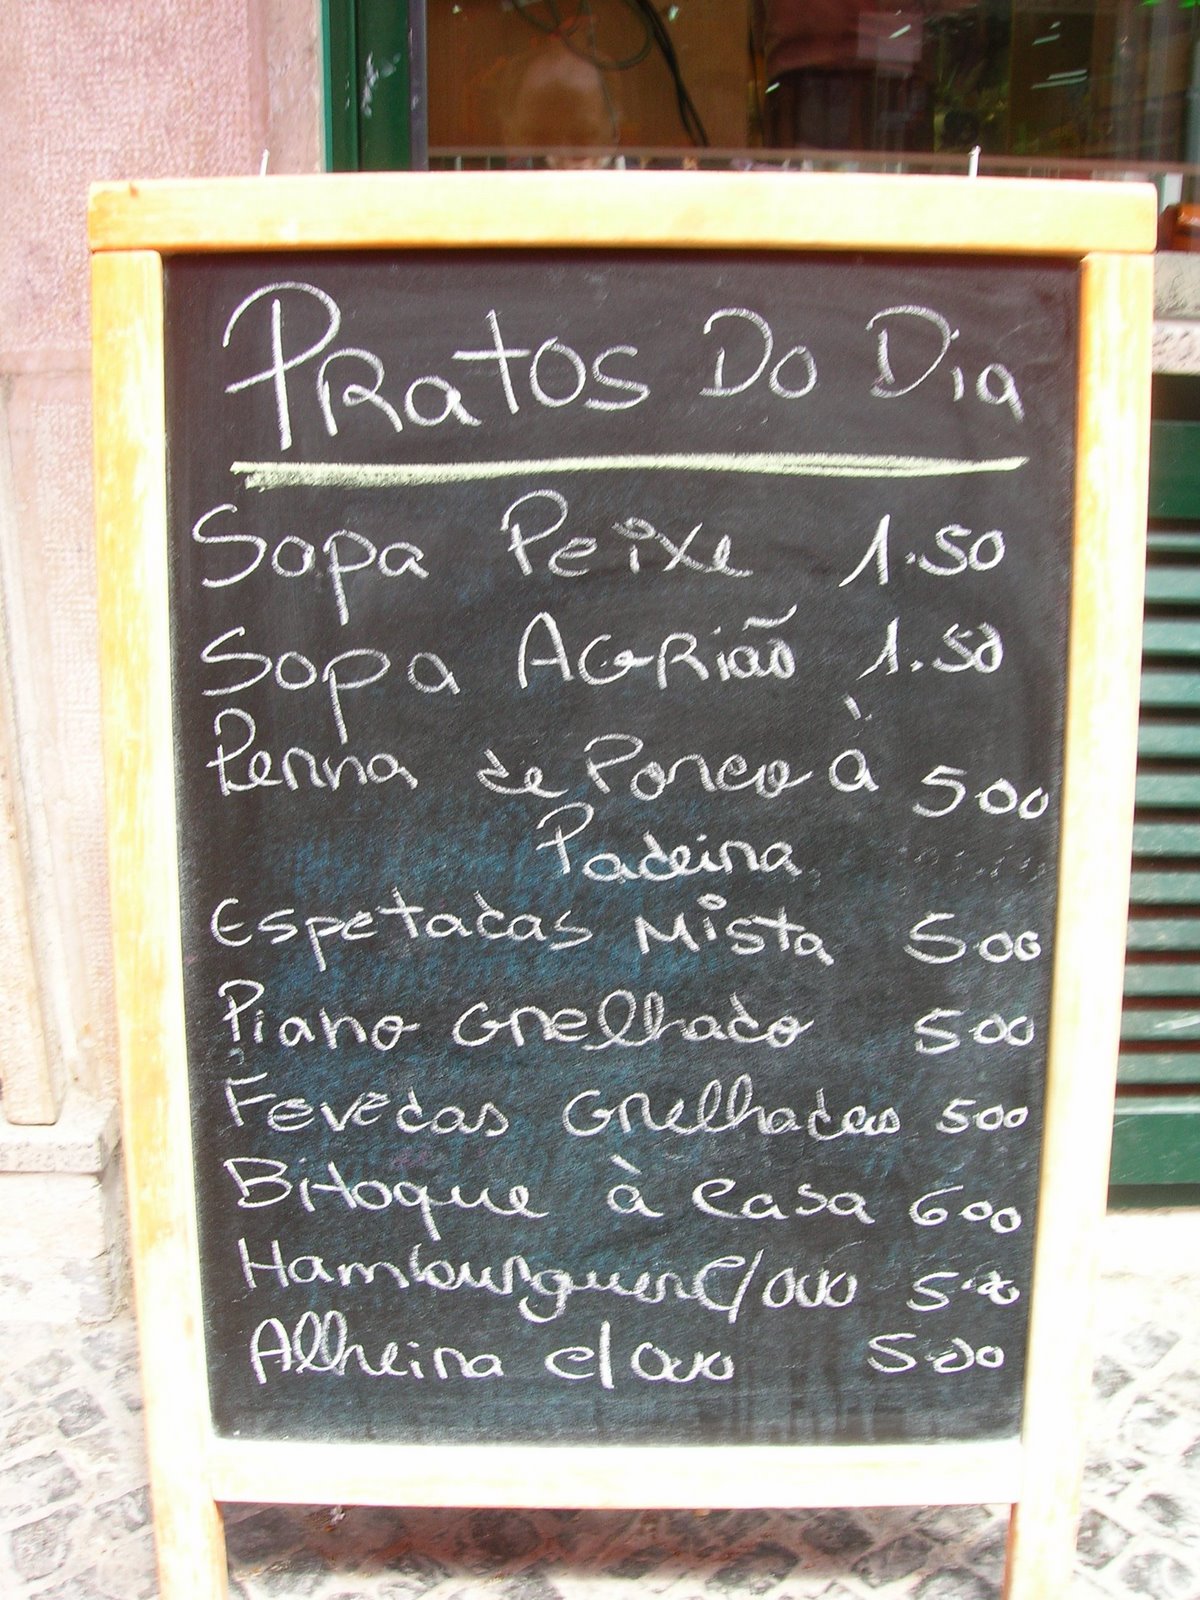 Pratos Do Dia
Sopa Peixe 1.50
Sopa Agrião 1.50
Perna de Porco à 500
Padeira
Espetadas Mista 500
Piano Grelhado 500
Fevedas Grelhadas 500
Bitoque à Casa 600
Hamburguer c/ovo 5.00
Alheira c/ovo 5.00